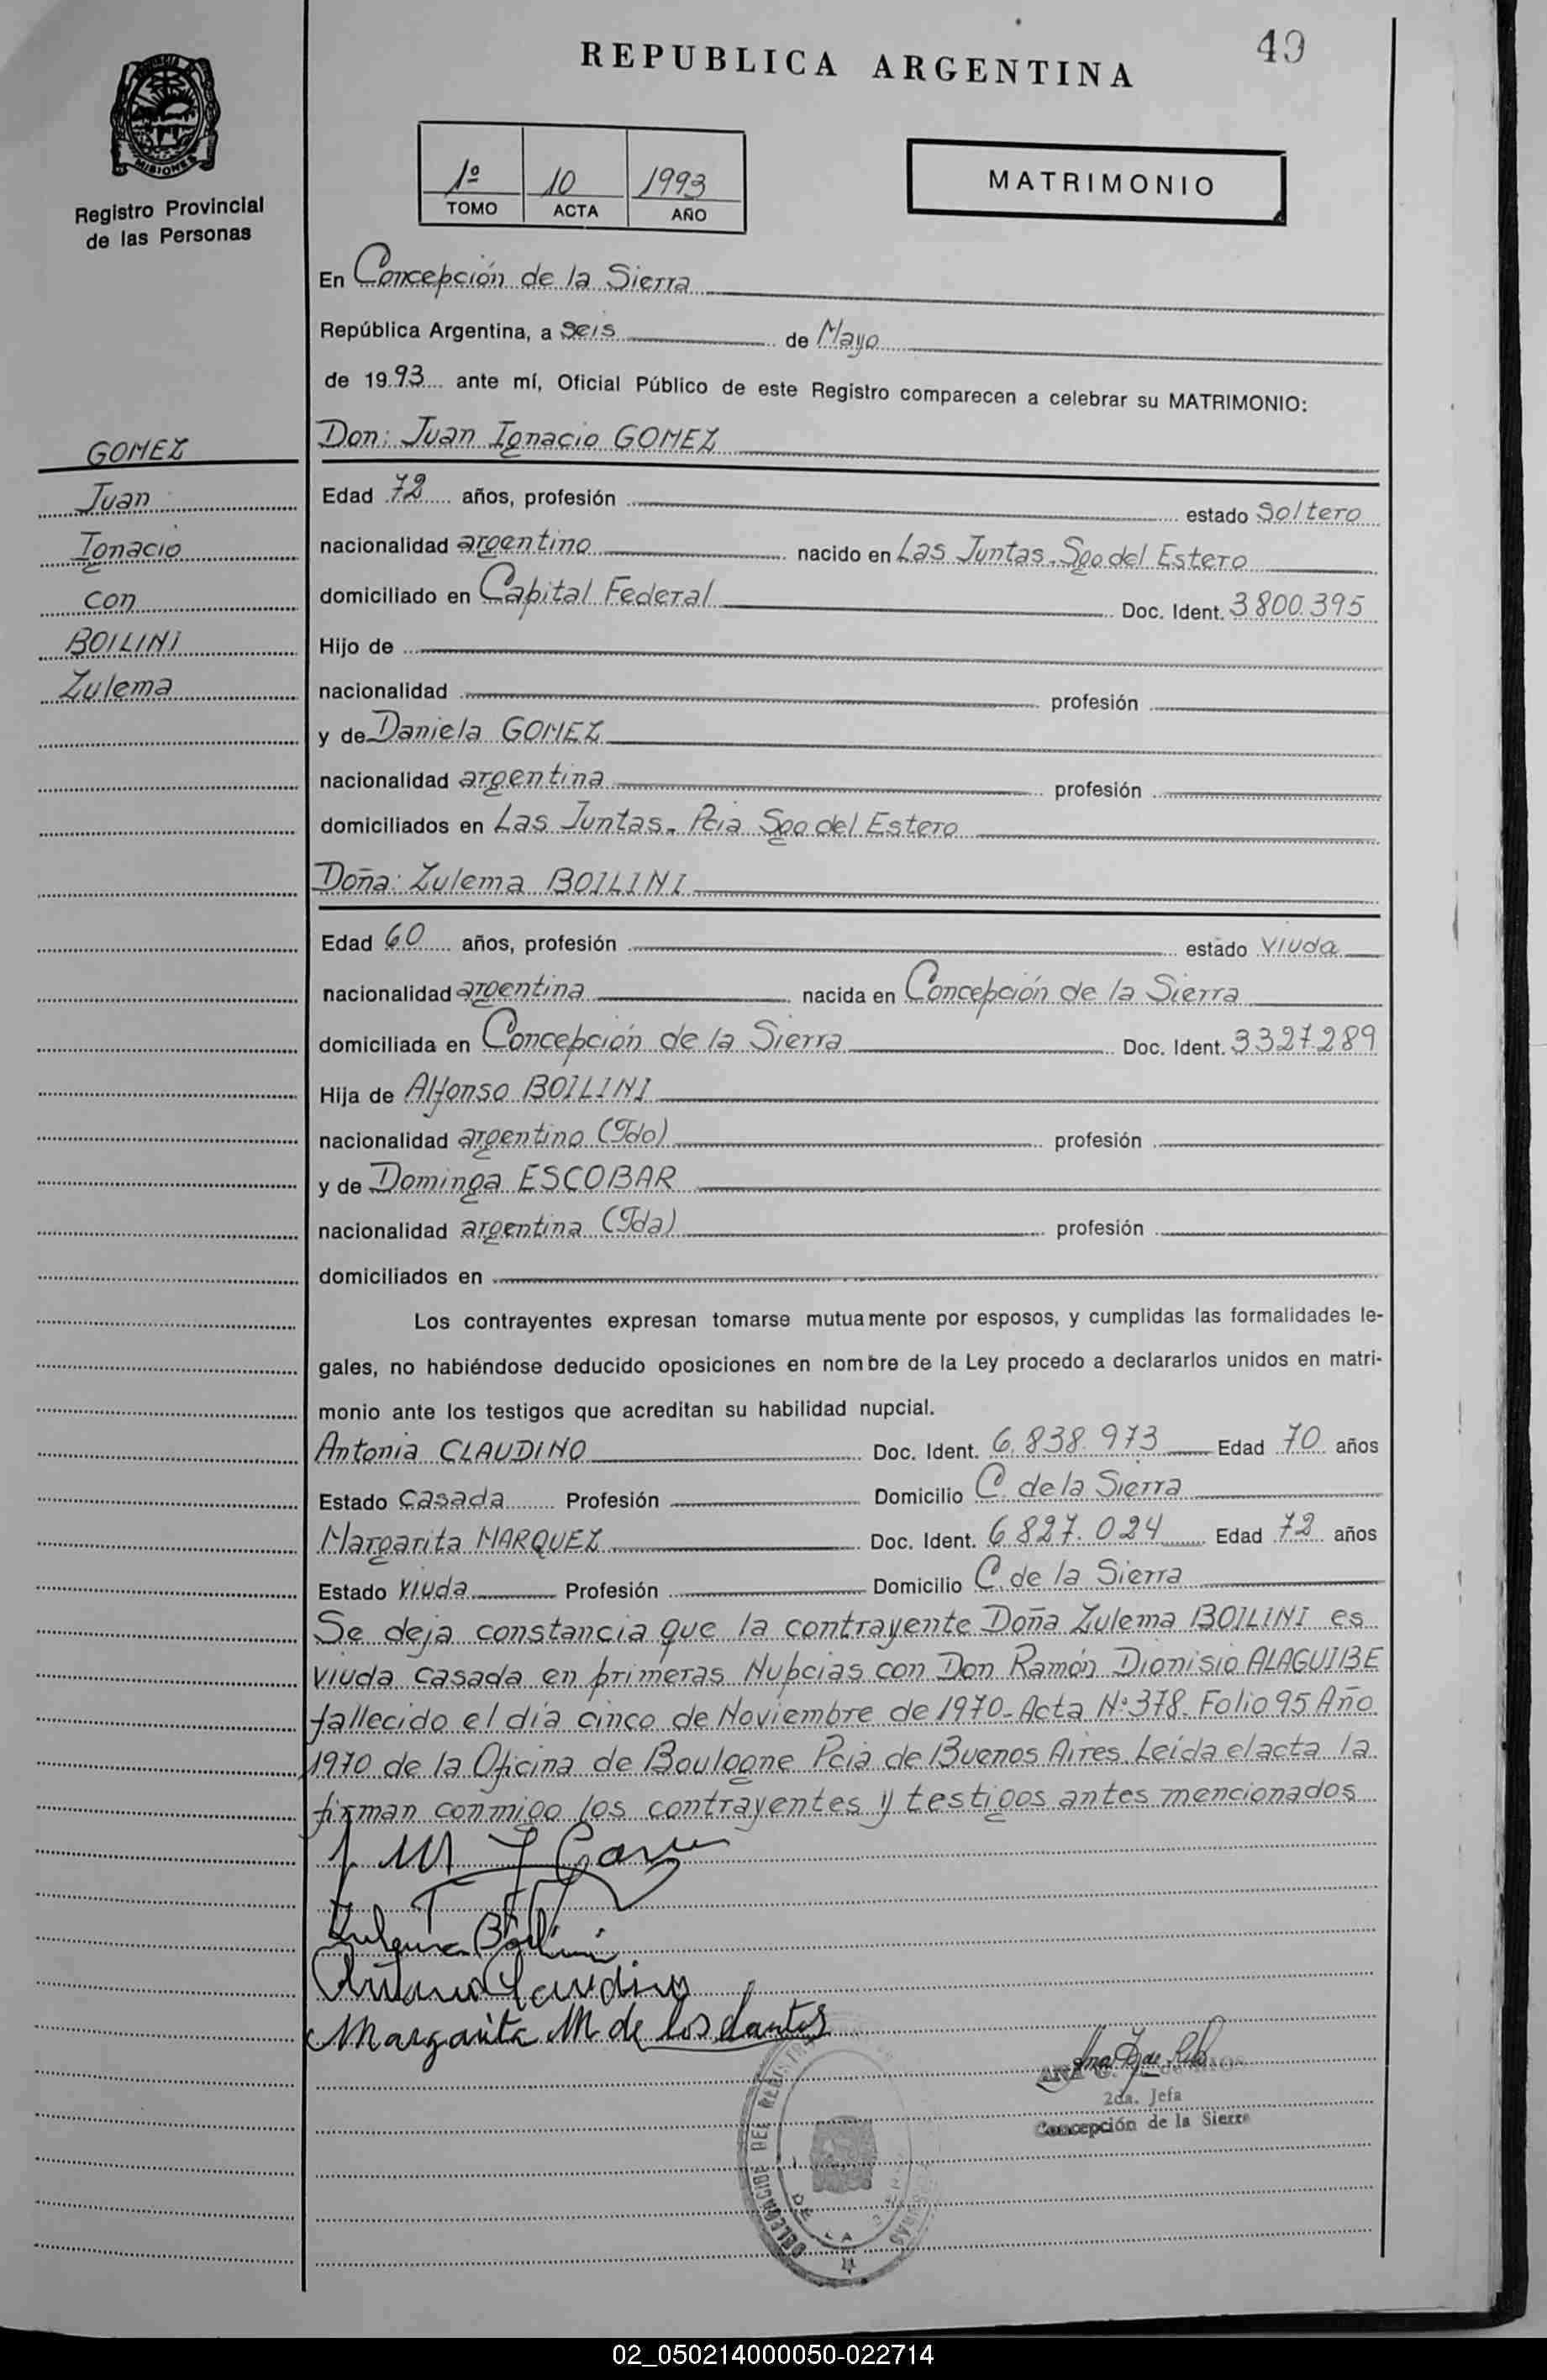 REPUBLICA ARGENTINA
49
MISIONES
Registro Provincial
de las Personas
1º 10 1993
TOMO ACTA AÑO
MATRIMONIO
En Concepción de la Sierra
República Argentina, a seis de Mayo
de 1993 ante mí, Oficial Público de este Registro comparecen a celebrar su MATRIMONIO:
GOMEZ
Juan
Ignacio
con
BOILINI
Zulema
Don: Juan Ignacio GOMEZ
Edad 72 años, profesión estado Soltero
nacionalidad argentino nacido en Las Juntas. Sgo del Estero
domiciliado en Capital Federal Doc. Ident. 3800.395
Hijo de
nacionalidad profesión
y de Daniela GOMEZ
nacionalidad argentina profesión
domiciliados en Las Juntas. Pcia Sgo del Estero
Doña: Zulema BOILINI
Edad 60 años, profesión estado viuda
nacionalidad argentina nacida en Concepción de la Sierra
domiciliada en Concepción de la Sierra Doc. Ident. 3327289
Hija de Alfonso BOILINI
nacionalidad argentino (Fdo) profesión
y de Dominga ESCOBAR
nacionalidad argentina (Fda) profesión
domiciliados en
Los contrayentes expresan tomarse mutuamente por esposos, y cumplidas las formalidades le-
gales, no habiéndose deducido oposiciones en nombre de la Ley procedo a declararlos unidos en matri-
monio ante los testigos que acreditan su habilidad nupcial.
Antonia CLAUDINO Doc. Ident. 6.838.973 Edad 70 años
Estado casada Profesión Domicilio C. de la Sierra
Margarita MARQUEZ Doc. Ident. 6827.024 Edad 72 años
Estado viuda Profesión Domicilio C. de la Sierra
Se deja constancia que la contrayente Doña Zulema BOILINI es
viuda casada en primeras Nupcias con Don Ramón Dionisio ALAGUIBE
fallecido el día cinco de Noviembre de 1970-Acta Nº 378. Folio 95 Año
1970 de la Oficina de Boulogne Pcia de Buenos Aires. Leída el acta la
firman conmigo los contrayentes y testigos antes mencionados
Zulema Boilini
Antonia Claudino
Margarita M de los Santos
2da. Jefa
Concepción de la Sierra
02_050214000050-022714